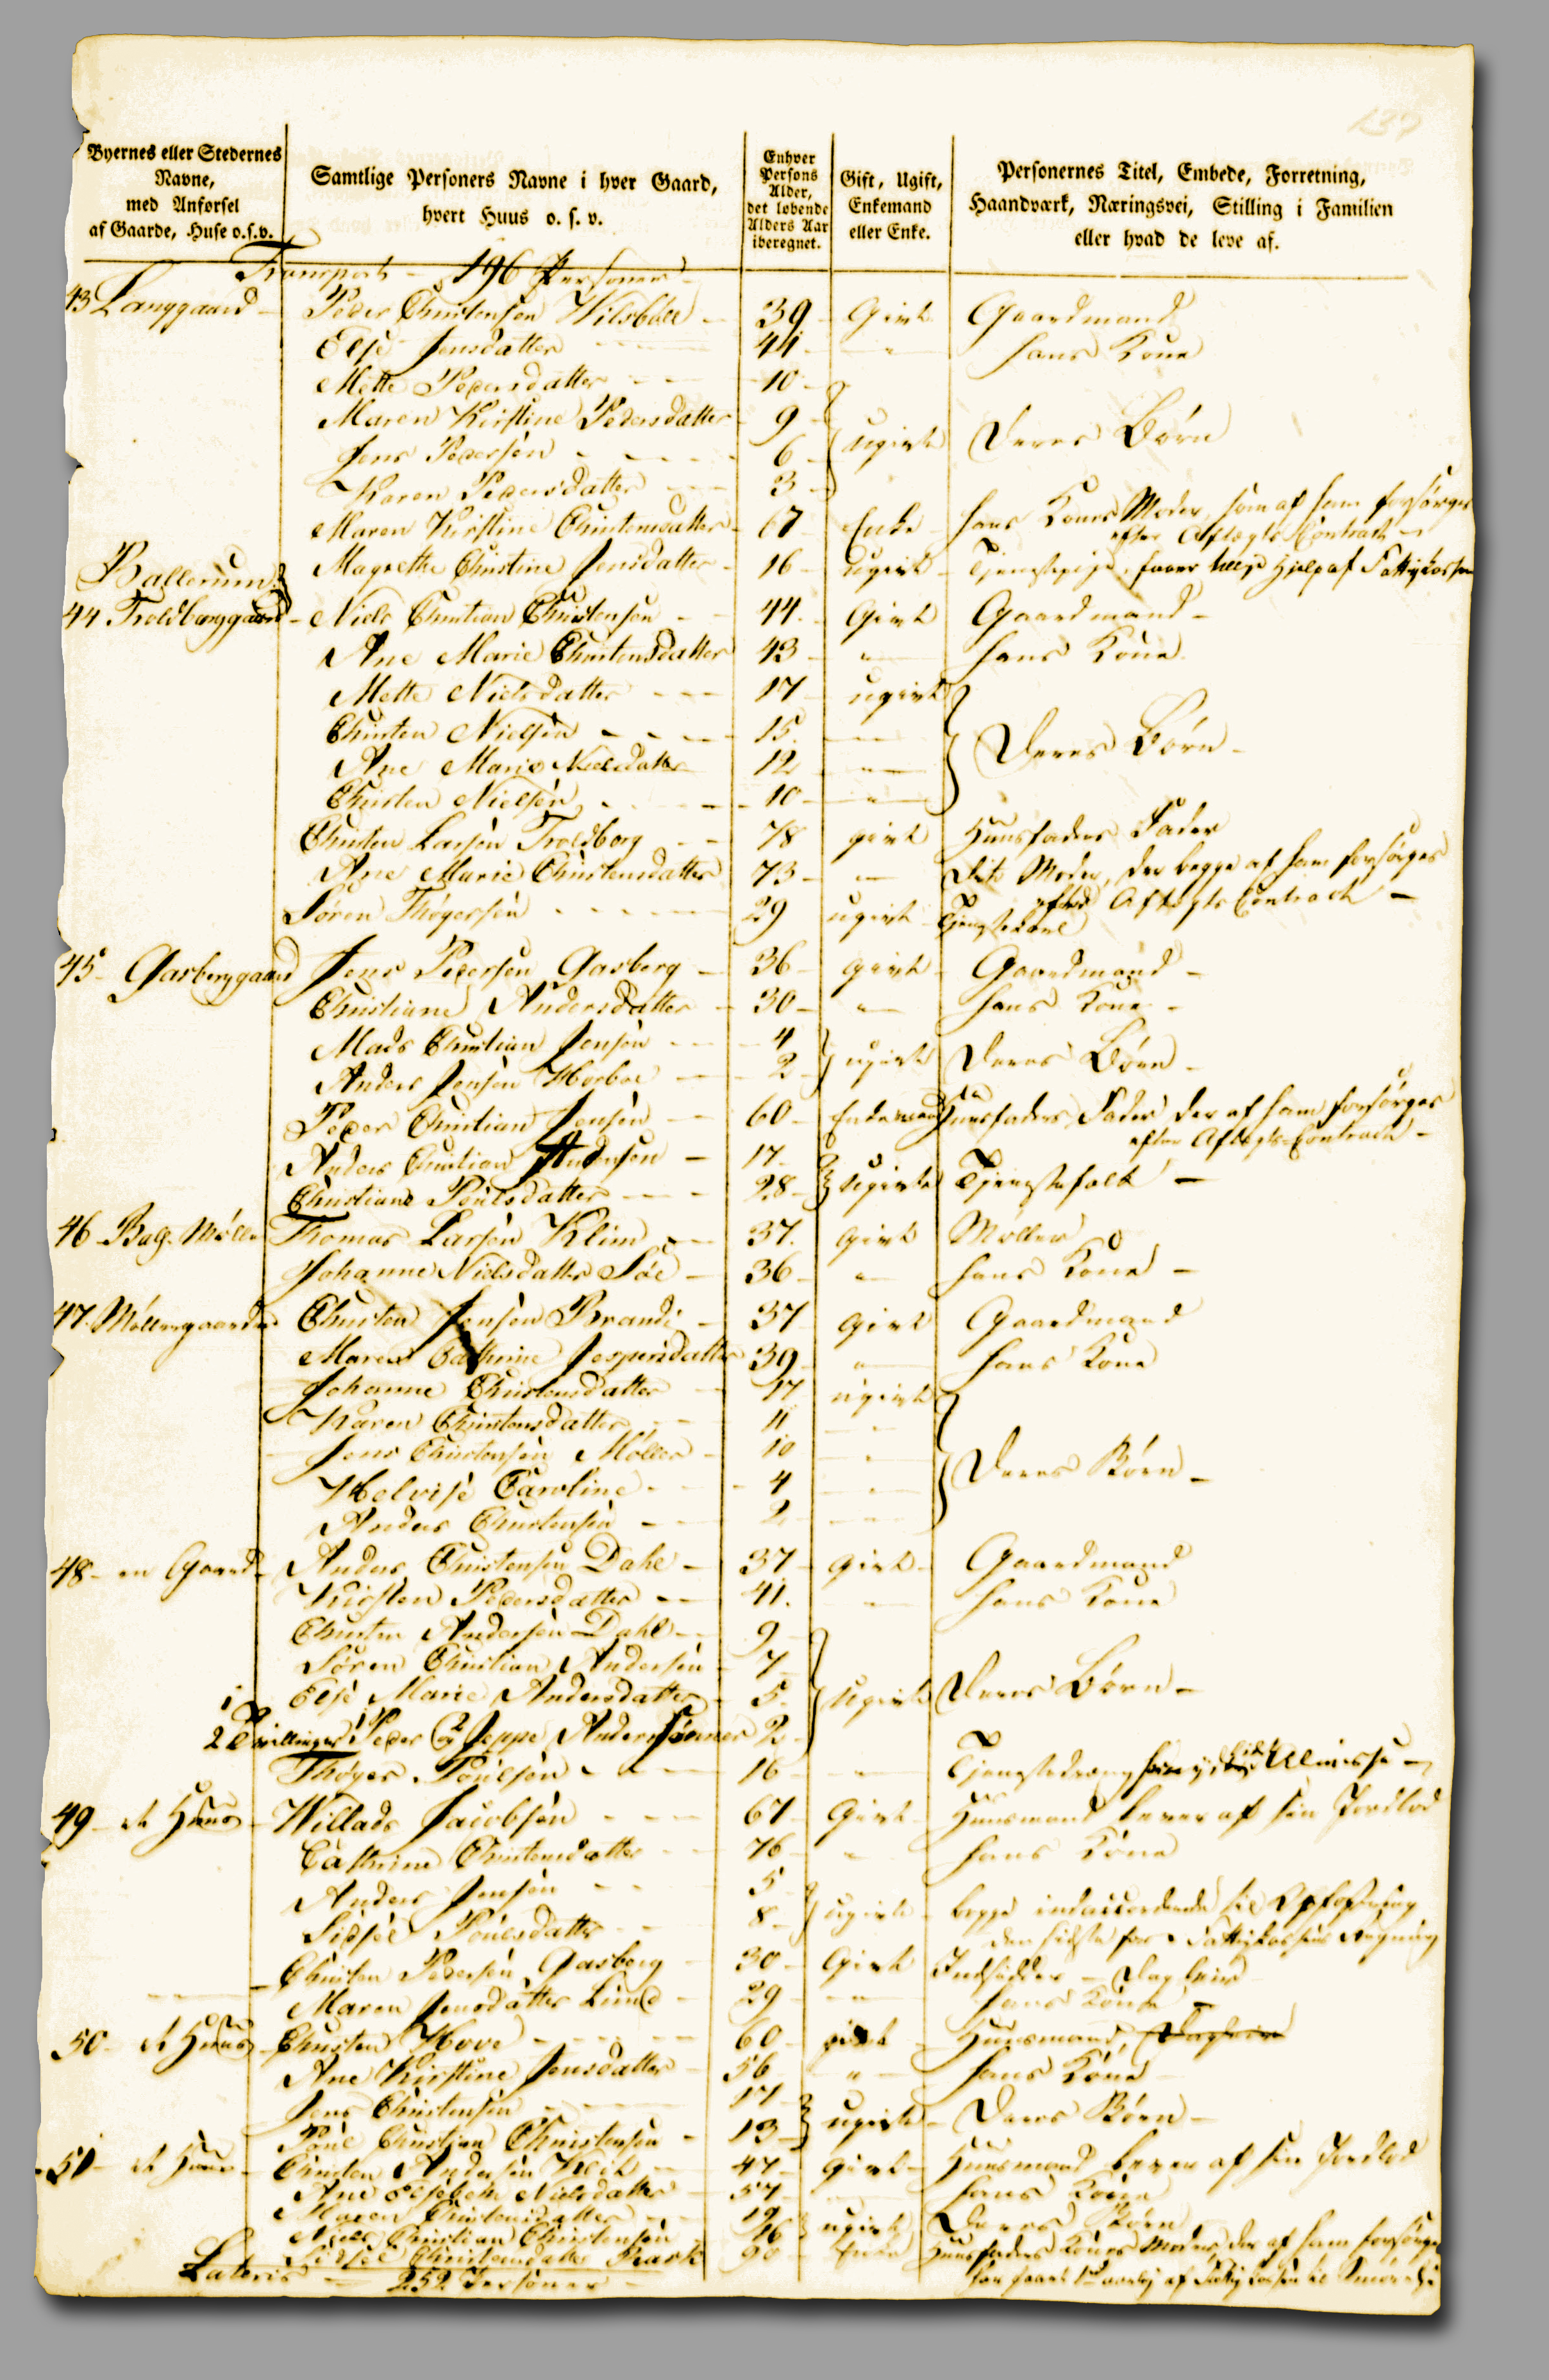 139
Byernes eller Stedernes
Navne,
med Anførsel
af Gaarde, Huse o.s.v.
Samtlige Personers Navne i hver Gaard,
hvert Huus o. s. v.
Enhver
Persons
Alder,
det løbende
Alders Aar
iberegnet.
Gift, Ugift,
Enkemand
eller Enke.
Personernes Titel, Embede, Forretning,
Haandværk, Næringsvei, Stilling i Familien
eller hvad de leve af.
Transport - 196 Personer
43 Langgaard - Peder Christensen Vilsbøll - 39 - Givt Gaardmand
Else Jensdatter 44 - " hans Kone
Mette Pedersdatter 10 -
Maren Kirstine Pedersdatter 9 -
Jens Pedersen 6 - ugivte Deres Børn
Karen Pedersdatter 3 -
Maren Kirstine Christensdatter - 67 Enke hans Kones Moder, som af ham forsørges
efter Aftægts Contract -
Magrethe Christine Jensdatter - 16 - ugivt - Tjenestepige, faaer Hjelp af Fattigkassen
Ballerum
44 Troldborggaard - Niels Christian Christensen 44. Givt Gaardmand -
Ane Marie Christensdatter 43 - " hans Kone
Mette Nielsdatter 17 - ugivt
Christen Nielsen 15. " Deres Børn -
Ane Marie Nielsdatter 12 "
Christen Nielsen 10 - "
Christen Larsen Troldborg 78 givt Huusfaders Fader
Ane Marie Christensdatter 73 - " dito Moder, der begge af ham forsørges
efter Aftægts Contract -
Søren Thøgersen 29 ugivt - Tjenestekarl
45 - Gasberggaard Jens Pedersen Gasberg - 36 - givt - Gaardmand -
Christiane Andersdatter - 30 - " hans Kone -
Mads Christian Jensen 4
Anders Jensen Horboe 2 - ugivte Deres Børn -
Peder Christian Jensen 60 - Enkemand Huusfaders Fader der af ham forsørges
efter Aftægts-Contract -
Anders Christian Andersen - 17 -
Christiane Poulsdatter 28 - Ugivte Tjenestefolk -
46 Balg. Mølle Thomas Larsen Klim 37. givt Møller
Johanne Nielsdatter Söe - 36 - " hans Kone -
47. Møllergaarden Christen Jensen Brandi - 37 givt Gaardmand
Maren Cathrine Jespersdatter 39 - " hans Kone
Johanne Christensdatter 17 ugivt
Karen Christensdatter 11 "
Jens Christensen Møller 10 " Deres Børn -
Helvise Caroline 4 "
Anders Christensen 2 "
48 - en Gaard - Anders Christensen Dahl - 37 - givt - Gaardmand
Kirsten Pedersdatter 41. " hans Kone
Christen Andersen Dahl 9 -
Søren Christian Andersen 7
Else Marie Andersdatter 5 - Ugivte Deres Børn -
2 Tvillinger 1 Peder og 2 Jeppe Anderssønner 2
Thøger Poulsen 16 - " Tjenestedreng Almisse -
49 - et Huus - Willads Jacobsen 67 Givt - Huusmand lever af sin Jordlod
Cathrine Christensdatter 76 " hans Kone
Anders Jensen 5
Sidsel Poulsdatter 8 - ugivte - begge indaccorderede til Opfostring
den sidste for Fattigkassens Regning
Christen Pedersen Gasberg 30 - Givt Indsidder - Dagleier
Maren Jensdatter Lund - 29 - " hans Kone -
50 - et Huus Christen Hove 60 - givt - Huusmand, Dagleier
Ane Kirstine Jensdatter 56 " hans Kone
Jens Christensen 17
Poul Christian Christensen - 13 - ugivte - Deres Børn -
51 - et Huus - Christen Andersen 47 - givt - Huusmand lever af sin Jordlod
Ane Elsebeth Nielsdatter 57 - hans Kone
Maren Christensdatter 19
Niels Christian Christensen 16 ugivte Deres Børn
Sidsel Christensdatter 90 - Enke Huusfaders Kones Moder, der af ham forsørges
Lateris - 252 Personer -